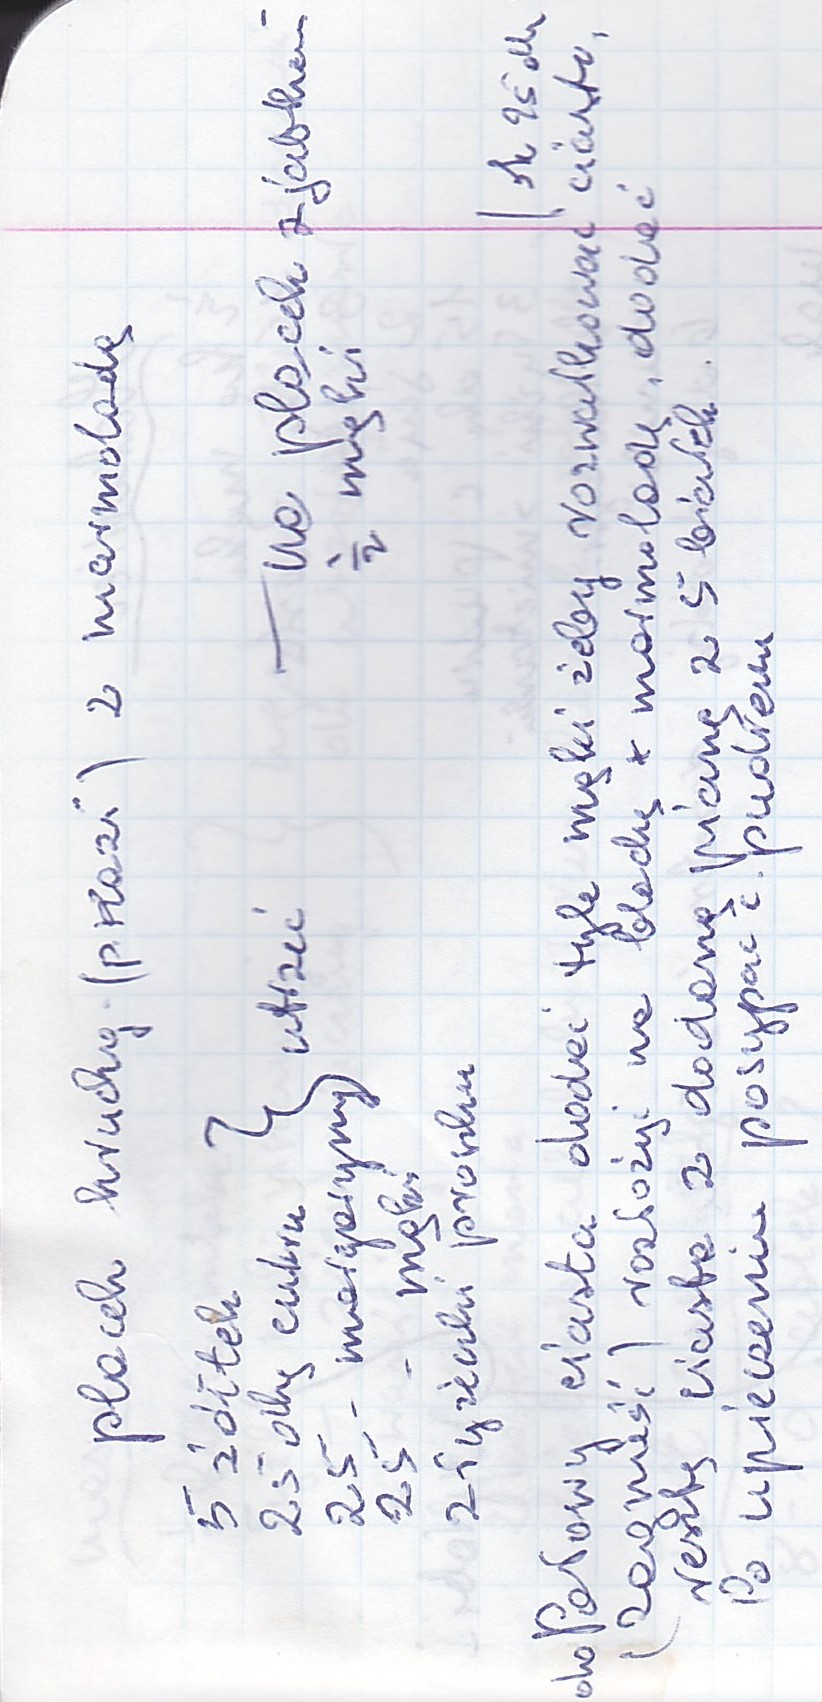 placek kruchy (p. Kazi) z marmoladą
5 żółtek
25 dkg cukru } utrzeć
25 - margaryny
25 - mąki
2 łyżeczki proszku
— na placek z jabłkami
½ mąki
| ok 25 dk
do Połowy ciasta dodać tyle mąki żeby rozwałkować ciasto,
(zagnieść) rozłożyć na blachę + marmoladę, dodać
resztę ciasta z dodaną pianą z 5 białek.
Po upieczeniu posypać c. pudrem